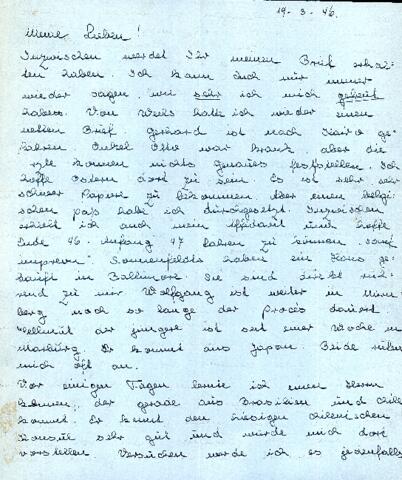 19. 3. 46.
Meine Lieben!
Inzwischen werdet Ihr meinen Brief erhal-
ten haben. Ich kann Euch nur immer
wieder sagen, wie sehr ich mich gefreut
habe. Von Weils hatte ich wieder einen
netten Brief Gerhard ist nach Kairo ge-
fahren. Onkel Otto war krank, aber die
Ärzte konnten nichts genaues feststellen. Ich
hoffe Ostern dort zu sein Es ist sehr sehr
schwer Papiere zu bekommen Aber einen belgi-
schen pass habe ich durchgesetzt. Inzwischen
erhielt ich auch mein Affidavit und hoffe
Ende 46. Anfang 47 fahren zu können
Sonnenfelds haben ein Haus ge-
kauft in Baltimore. Sie sind
zu mir Wolfgang ist weiter in Nürn-
berg noch so lange der Procès dauert.
Hellmut der jüngere ist seit einer Woche in
Marburg Er kommt aus Japan. Beide rufen
mich oft an.
Vor einigen Tagen lernte ich einen Herrn
kennen, der gerade aus Brasilien und Chile
kommt. Er kennt den hiesigen chilenischen
Konsul sehr gut und würde mich dort
vorstellen. Versuchen werde ich es jedenfalls